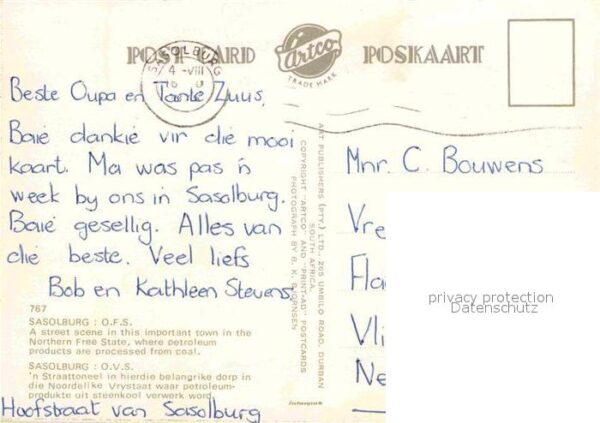 POST CARD
Artco
TRADE MARK
POSKAART
SASOLBURG
4 -VIII
Beste Oupa en Tante Zuus,
Baie dankie vir die mooi
kaart. Ma was pas 'n
week by ons in Sasolburg.
Baie gesellig. Alles van
die beste. Veel liefs
Bob en Kathleen Stevens
767
SASOLBURG : O.F.S.
A street scene in this important town in the
Northern Free State, where petroleum
products are processed from coal.
SASOLBURG : O.V.S.
'n Straattoneel in hierdie belangrike dorp in
die Noordelike Vrystaat waar petroleum-
produkte uit steenkool verwerk word
Hoofstraat van Sasolburg
ART PUBLISHERS (PTY.) LTD. 265 UMBILO ROAD, DURBAN
SOUTH AFRICA.
COPYRIGHT "ARTCO" AND "PRINT-AD" POSTCARDS
PHOTOGRAPH BY B. K. BJORNSEN
Mnr. C. Bouwens
Vre
Fla
Vli
Ne
privacy protection
Datenschutz